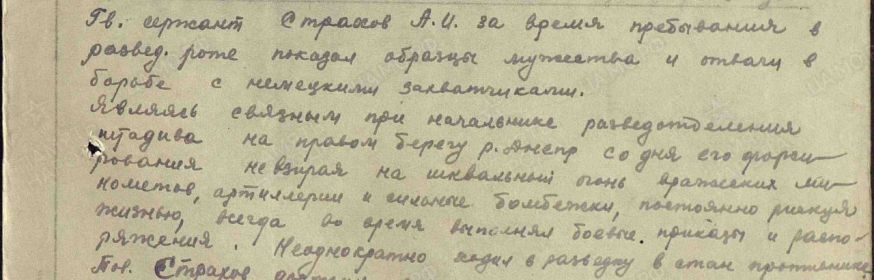 Гв. сержант Страхов А.И. за время пребывания в
развед. роте показал образцы мужества и отваги в
борьбе с немецкими захватчиками.
Являясь связным при начальнике разведотделения
штадива на правом берегу р. Днепр со дня его форси-
рования невзирая на шквальный огонь вражеских ми-
нометов, артиллерии и сильные бомбежки, постоянно рискуя
жизнью, всегда во время выполнял боевые приказы и распо-
ряжения. Неоднократно ходил в разведку в стан противника
Тов. Страхов